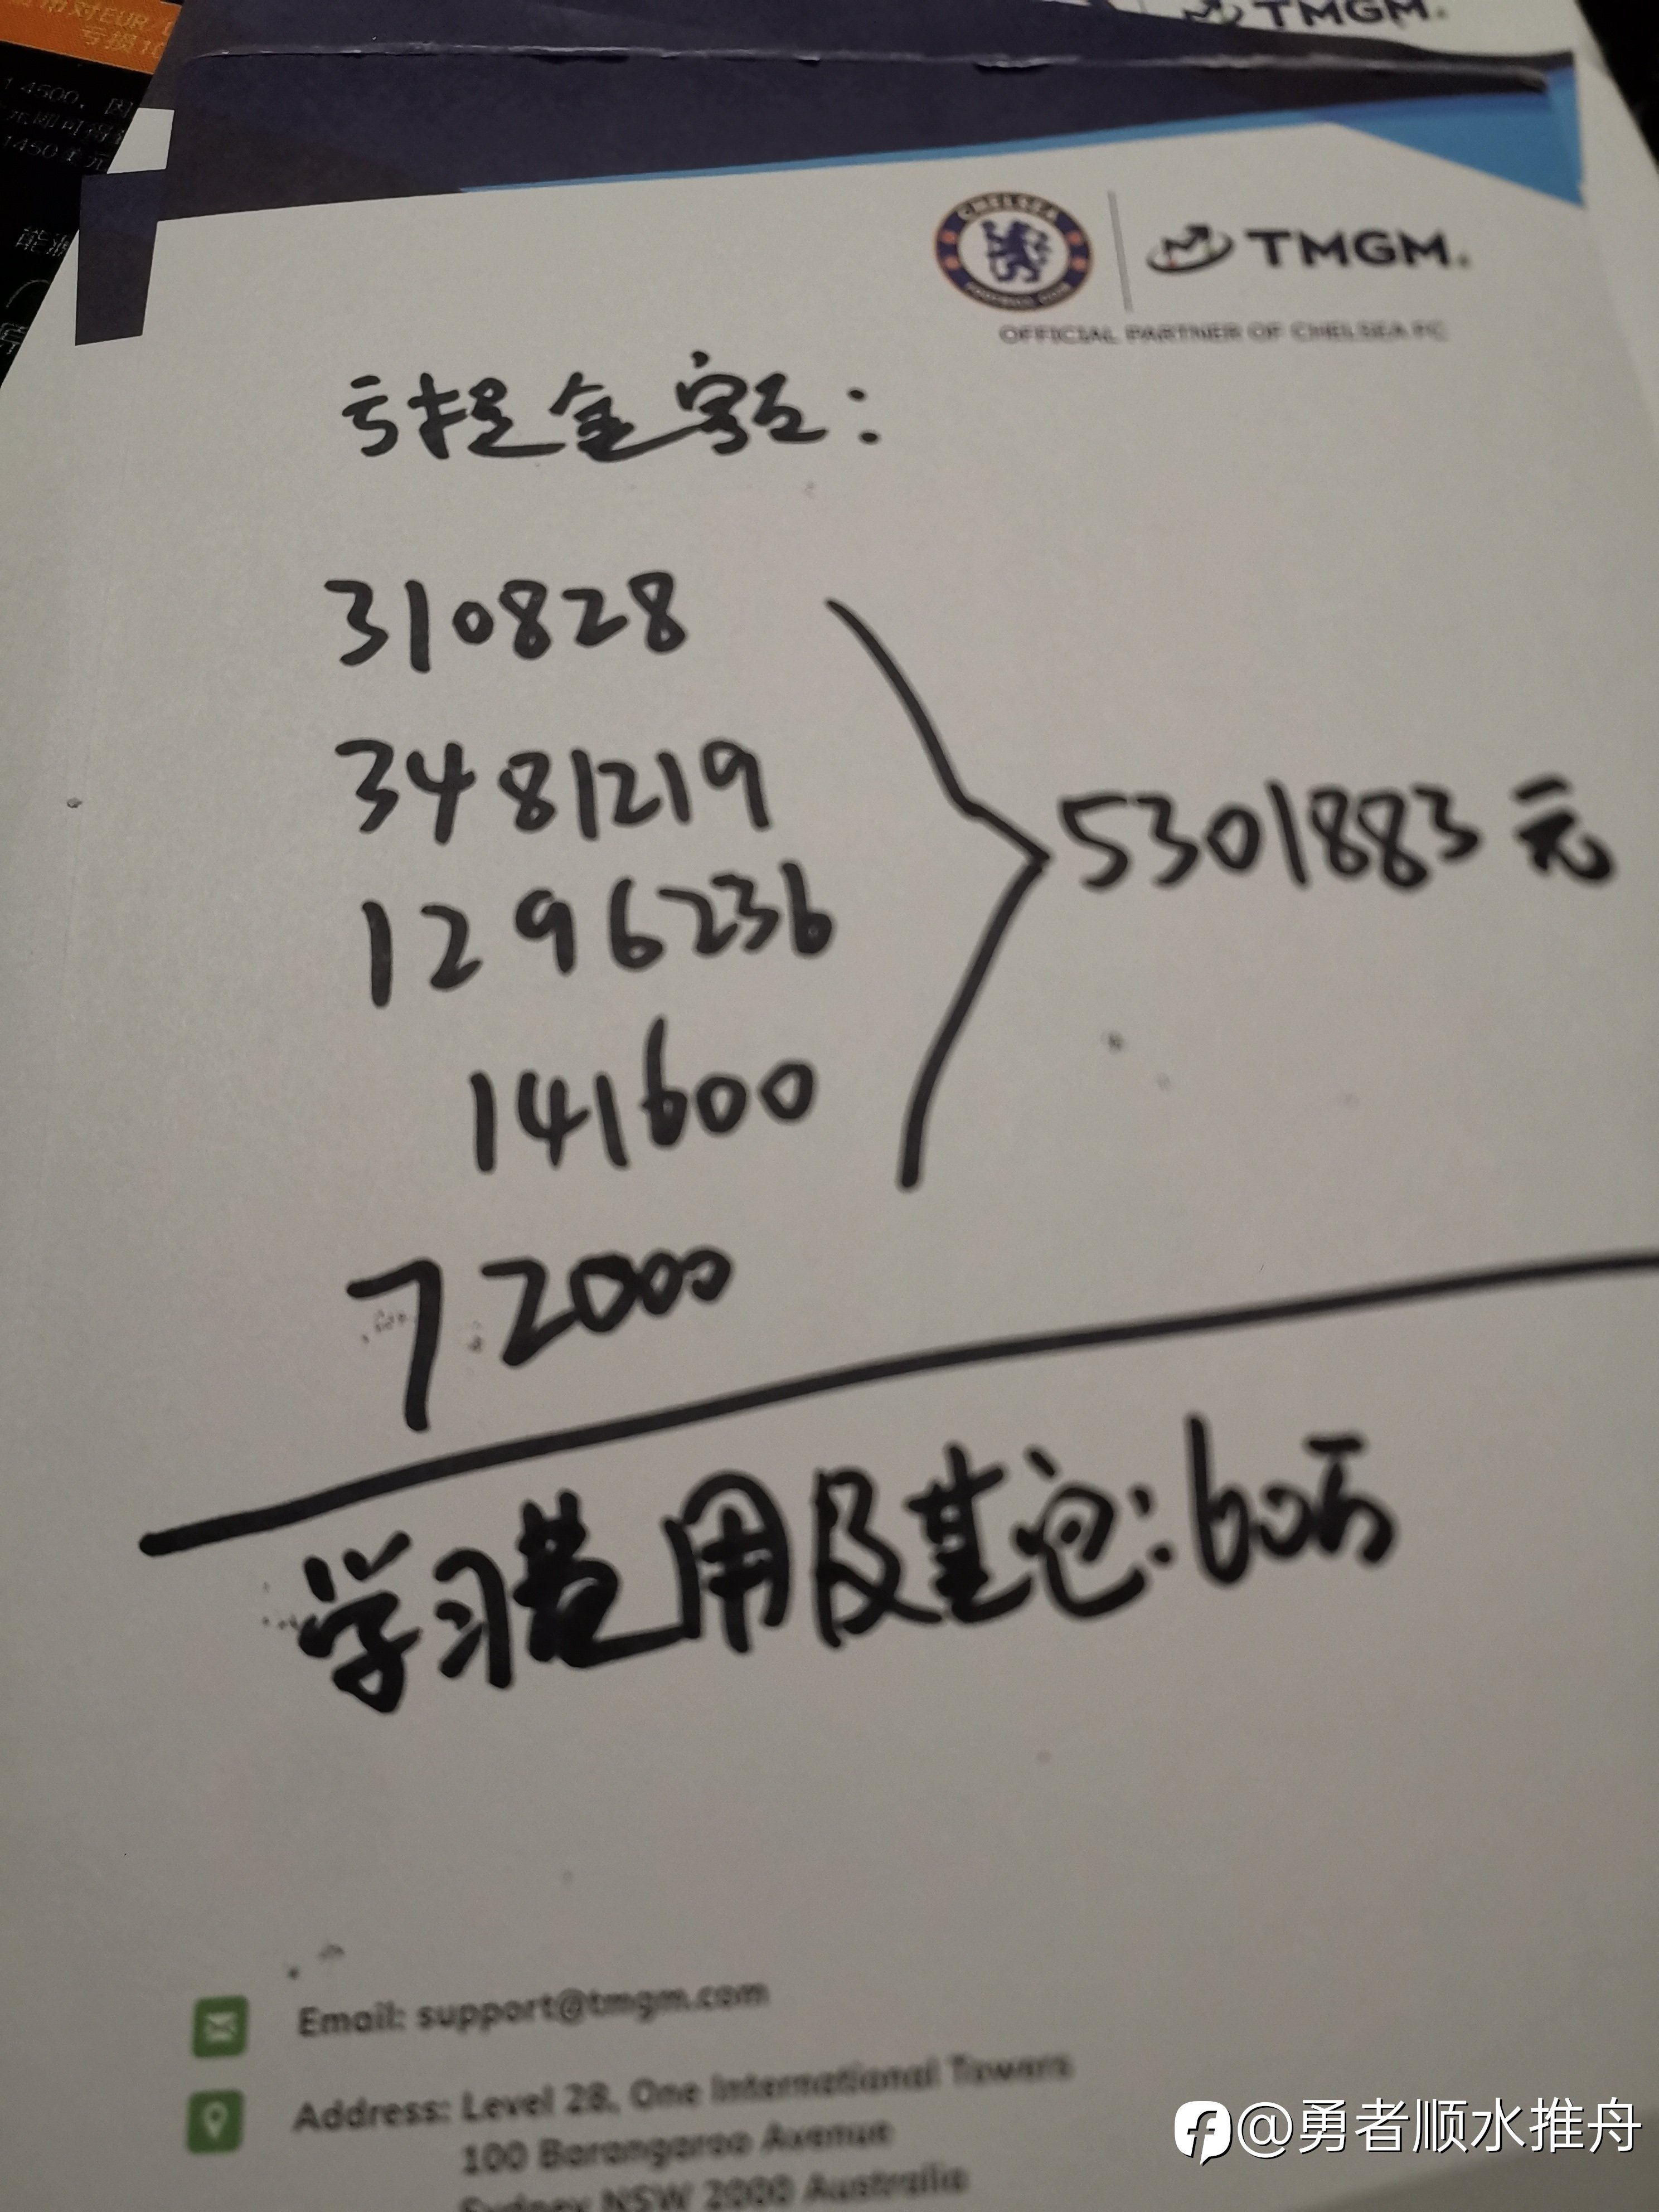 对EUR
亏损10
4500,
元即可得
1450美元
TMGM
CHELSEA
FOOTBALL CLUB
TMGM
OFFICIAL PARTNER OF CHELSEA FC
亏损金额:
310828
3481219
1296236
141600
72000
5301883元
学习费用及基包:60万
Email: support@tmgm.com
Address: Level 28, One International Towers
100 Barangaroo Avenue
Sydney NSW 2000 Australia
@勇者顺水推舟